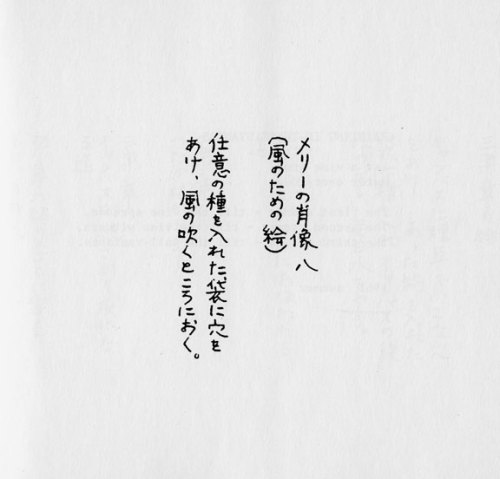 メリーの肖像 八
(風のための絵)
任意の種を入れた袋に穴を
あけ、風の吹くところにおく。